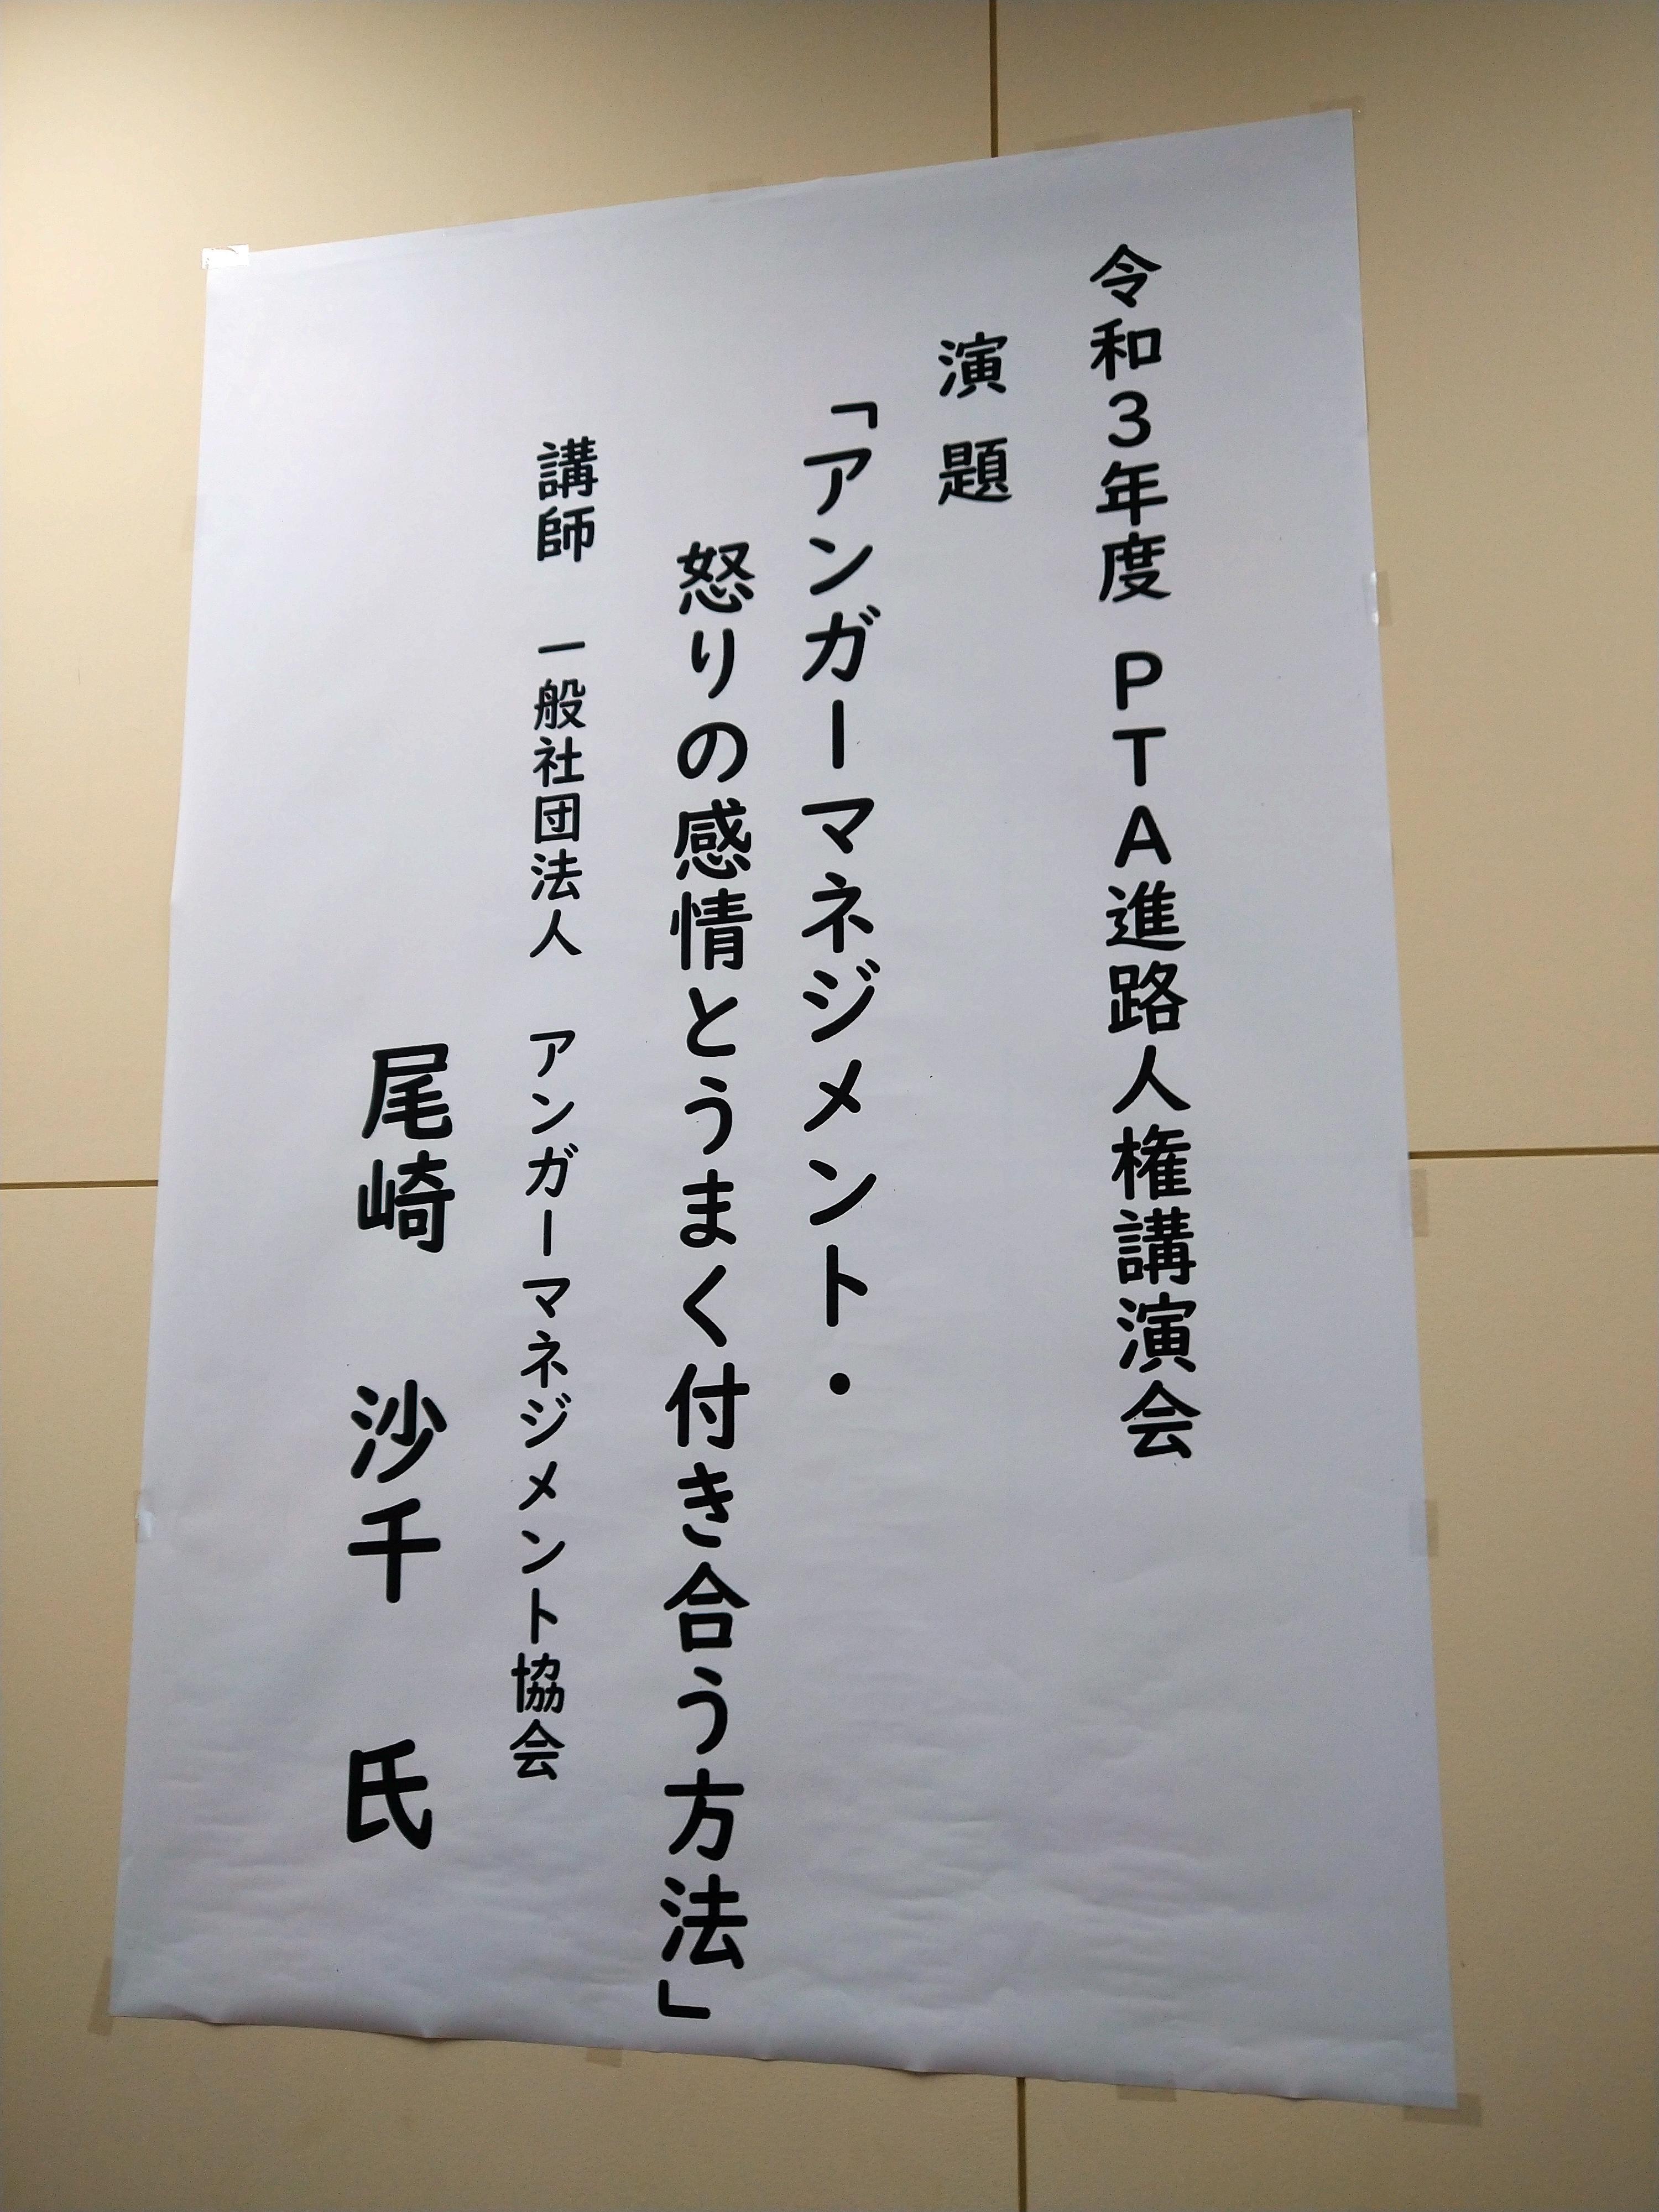 令和3年度 PTA進路人権講演会
演題
「アンガーマネジメント・
怒りの感情とうまく付き合う方法」
講師 一般社団法人 アンガーマネジメント協会
尾崎 沙千 氏